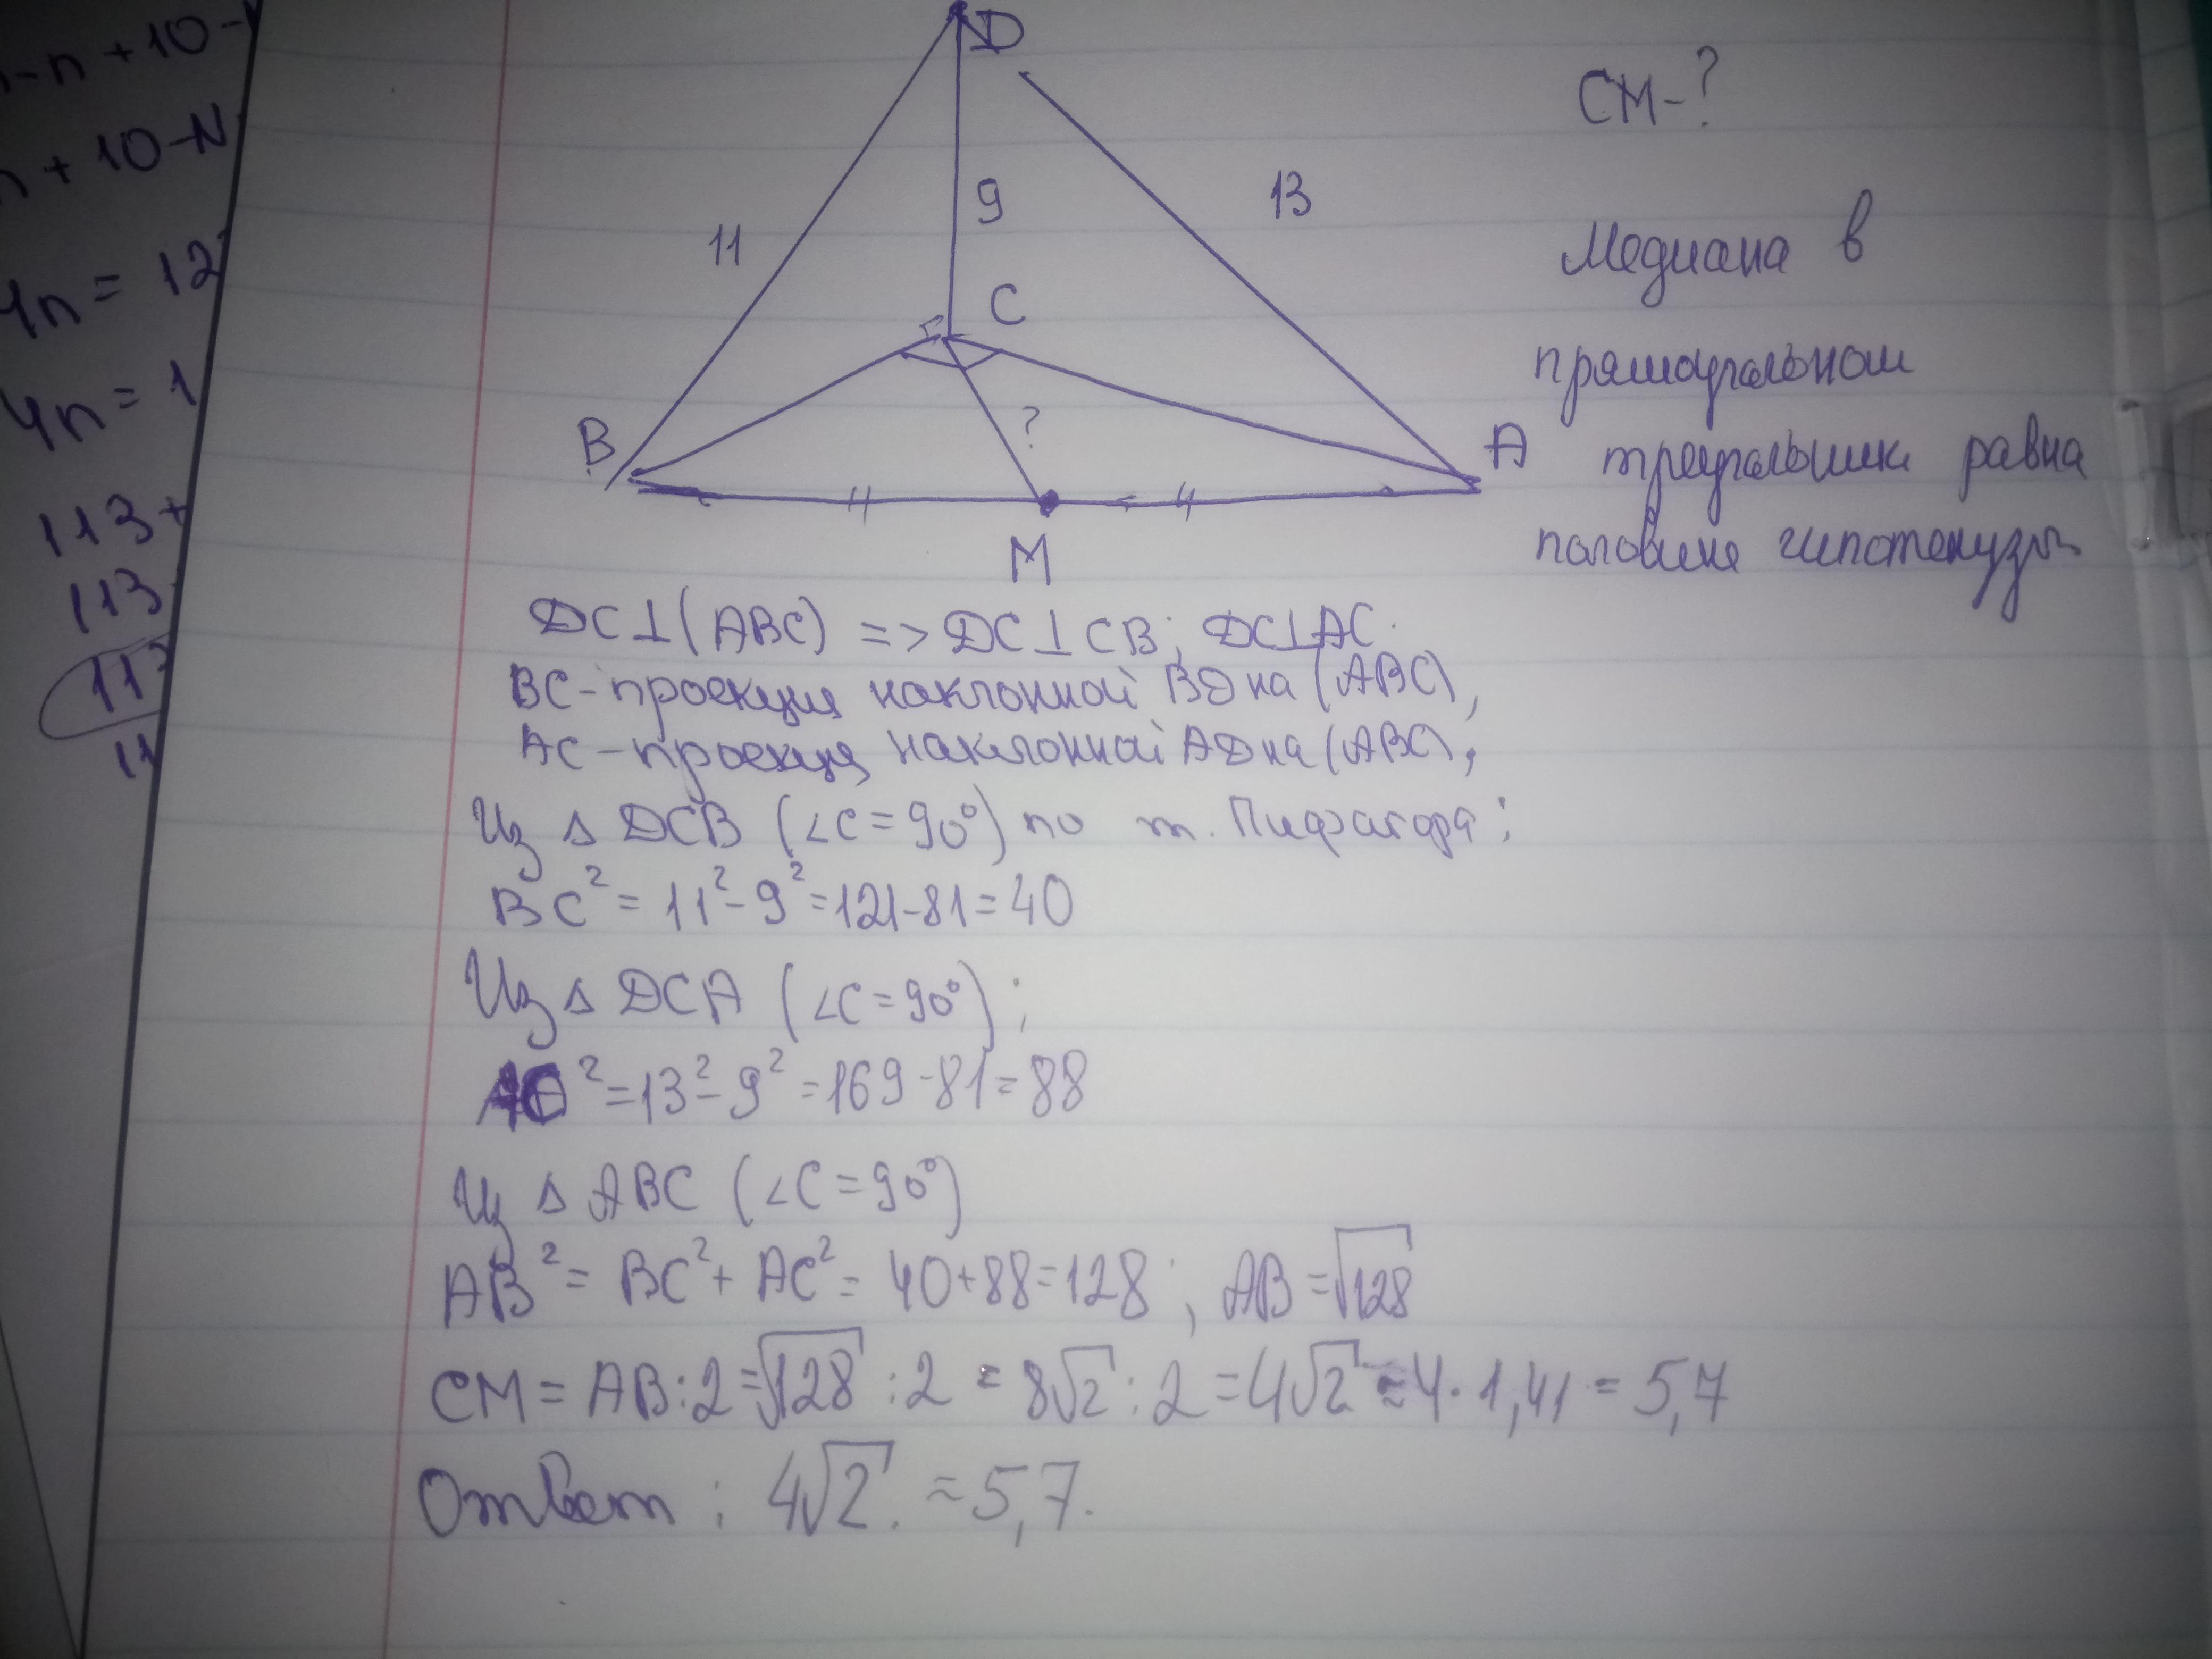 -n+10-
n+10-N
4n=12
4n=1
113+
113
113
11
D
11
9
13
C
B
?
A
M
CM-?
Медиана в
прямоугольном
треугольнике равна
половине гипотенузы
DC⊥(ABC) => DC⊥CB; DC⊥AC.
BC-проекция наклонной BD на (ABC),
AC-проекция наклонной AD на (ABC),
Из △ DCB (∠C=90°) по т. Пифагора:
BC²=11²-9²=121-81=40
Из △ DCA (∠C=90°);
AC²=13²-9²=169-81=88
Из △ ABC (∠C=90°)
AB²=BC²+AC²=40+88=128; AB=√128
CM=AB:2=√128:2=8√2:2=4√2≈4·1,41=5,7
Ответ: 4√2.≈5,7.